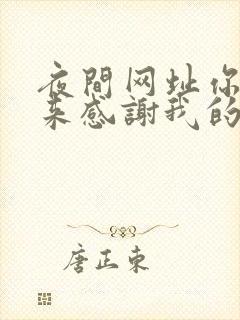 夜間网址你
来感謝我的
唐正東